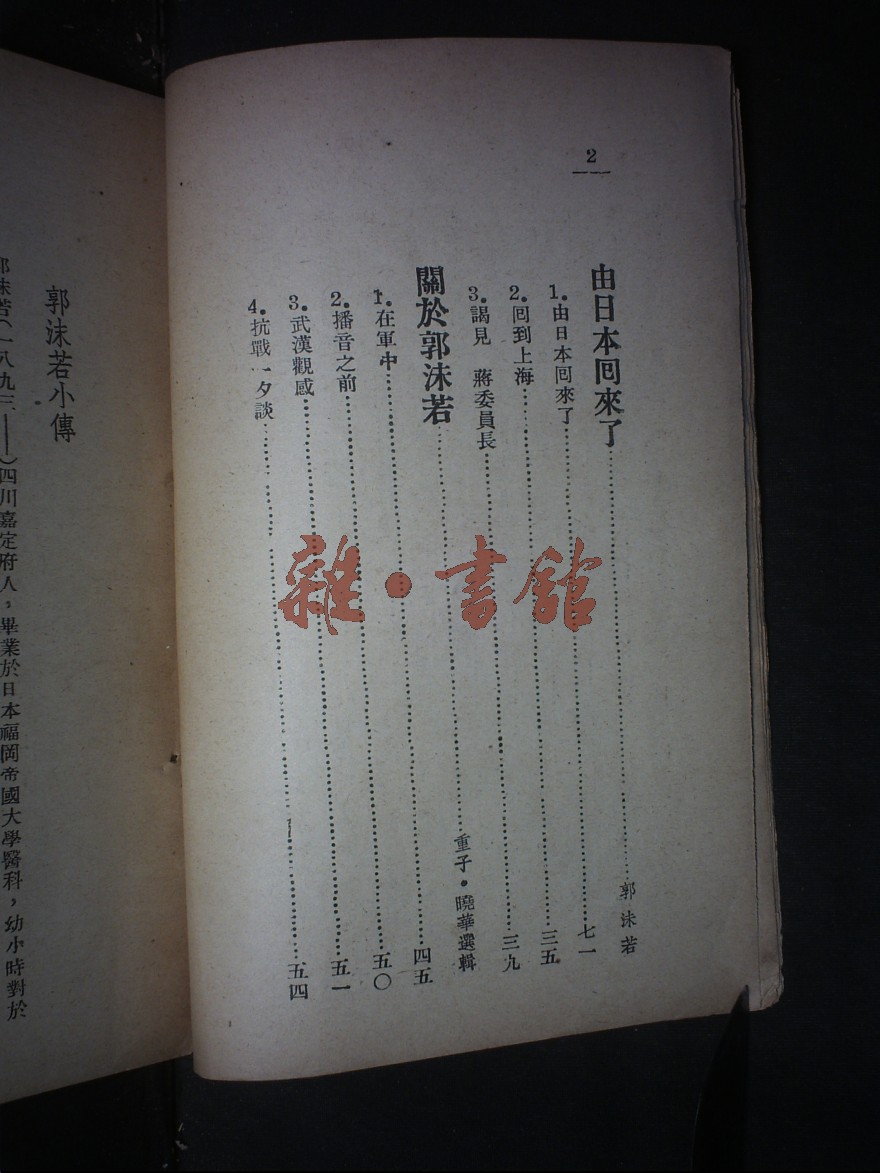 2
由日本囘來了……郭沫若
1.由日本囘來了……七一
2.囘到上海……三五
3.謁見 蔣委員長……三九
關於郭沫若……重子·曉華選輯
1.在軍中……四五
2.播音之前……五〇
3.武漢觀感……五一
4.抗戰一夕談……五四
雜·書館
郭沫若小傳
沫若(一八九——)四川嘉定府人，畢業於日本福岡帝國大學醫科，幼小時對於